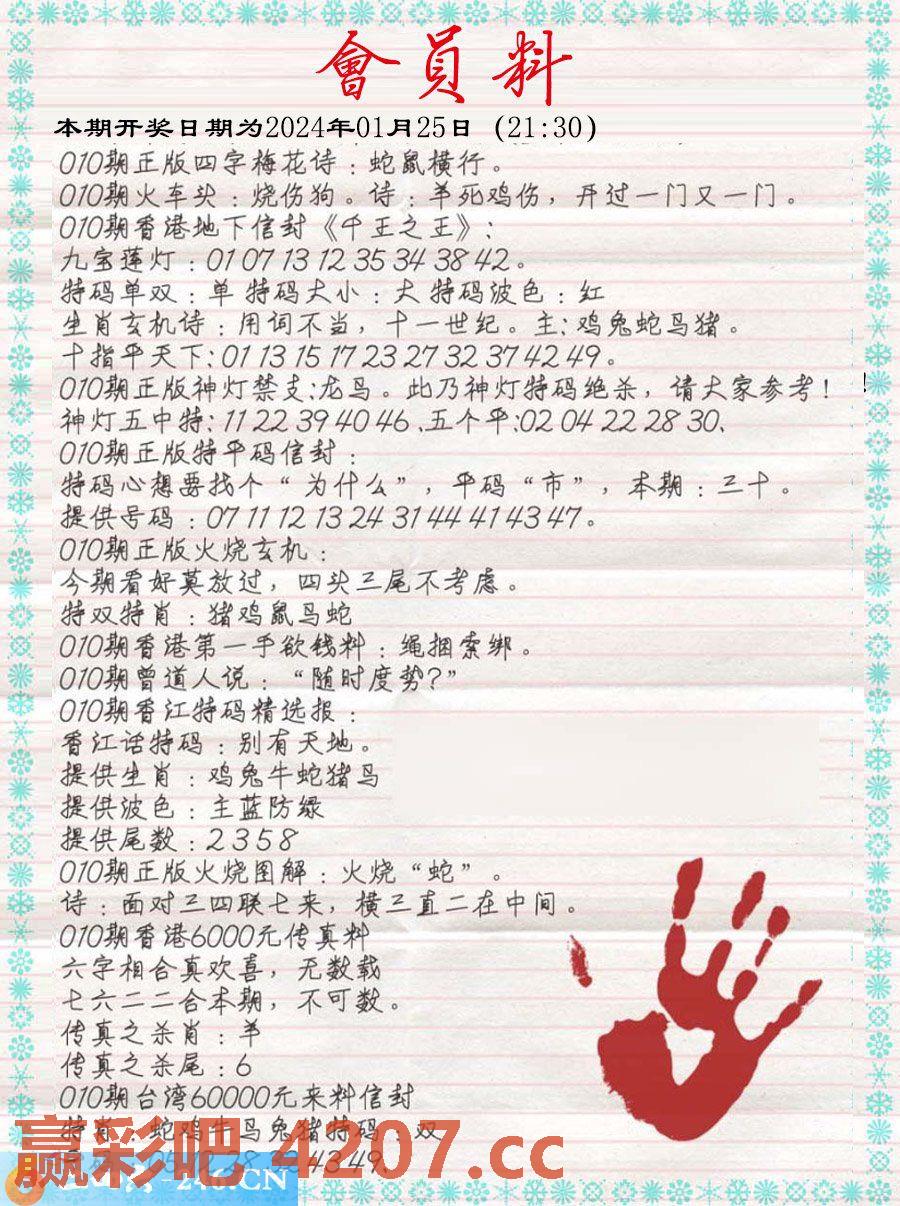 會員料
本期开奖日期为2024年01月25日 (21:30)
010期正版四字梅花诗：蛇鼠横行。
010期火车头：烧伤狗。诗：羊死鸡伤，开过一门又一门。
010期香港地下信封《千王之王》：
九宝莲灯：01 07 13 12 35 34 38 42。
特码单双：单 特码大小：大 特码波色：红
生肖玄机诗：用词不当，十一世纪。主：鸡兔蛇马猪。
十指平天下：01 13 15 17 23 27 32 37 42 49。
010期正版神灯禁支：龙鸟。此乃神灯特码绝杀，请大家参考！
神灯五中特：11 22 39 40 46、五个平：02 04 22 28 30、
010期正版特平码信封：
特码心想要找个“为什么”，平码“市”，本期：三十。
提供号码：07 11 12 13 24 31 44 41 43 47。
010期正版火烧玄机：
今期看好莫放过，四头三尾不考虑。
特双特肖：猪鸡鼠马蛇
010期香港第一手欲钱料：绳捆索绑。
010期曾道人说：“随时度势？”
010期香江特码精选报：
香江话特码：别有天地。
提供生肖：鸡兔牛蛇猪马
提供波色：主蓝防绿
提供尾数：2 3 5 8
010期正版火烧图解：火烧“蛇”。
诗：面对三四联七来，横三直二在中间。
010期香港6000元传真料
六字相合真欢喜，无数载
七六二二合本期，不可数。
传真之杀肖：羊
传真之杀尾：6
010期台湾60000元来料信封
特肖：蛇鸡牛马兔猪特码：双
赢彩吧 4207.cc
246.CN